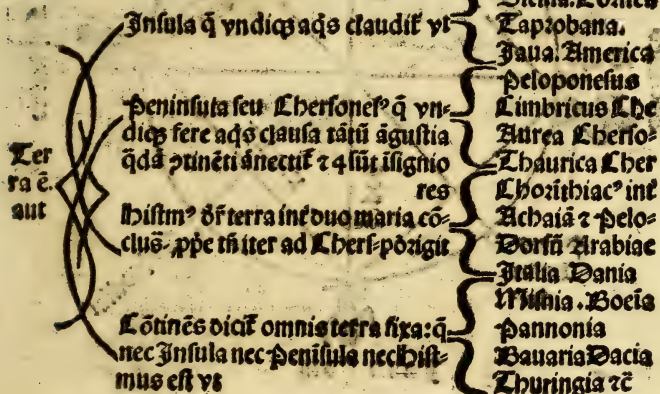 Ter
ra ē.
aut
Insula q̄ vndiqꝫ aq̄s claudit᷑ vt
Peninsula seu Chersones⁹ q̄ vn⸗
diqꝫ fere aq̄s clausa tātū āgustia
q̄dā ꝯtinēti ānectit᷑ ⁊ 4 sūt īsignio
res
Histm⁹ dr̄ terra int̄ duo maria cō⸗
clus᷑. ꝓpe tn̄ iter ad Chers⸗pōrigit
Cōtinēs dicit᷑ omnis terra fixa: q̄
nec Insula nec Penīsula nec Hist⸗
mus est vt
Taprobana.
Jaua. America
Peloponesus
Cimbricus Che
Aurea Cherso⸗
Thaurica Cher
Chorīthiac⁹ int̄
Achaiā ⁊ Pelo⸗
Dorsū Arabiae
Italia Dania
Misnia. Boeīa
Pannonia
Bauaria Dacia
Thuringia ⁊c̄